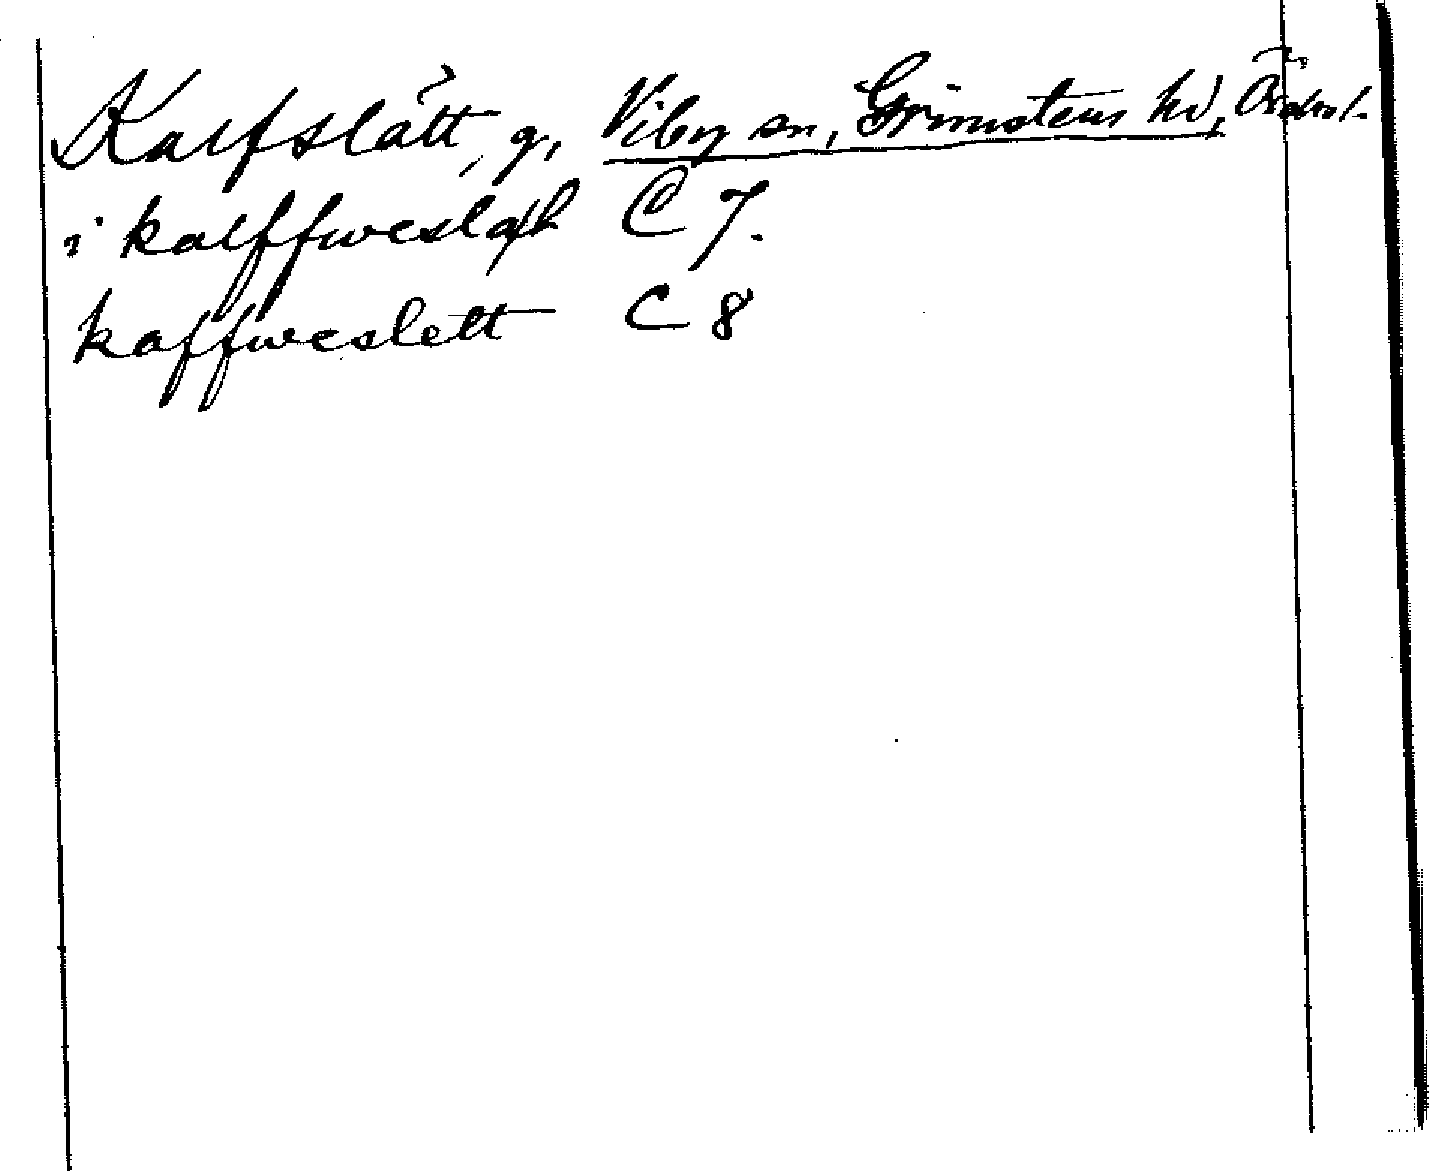 Kalfslätt, g, Viby sn, Grimstens hd,
i kalffwesla C 7.
kaffweslett C 8